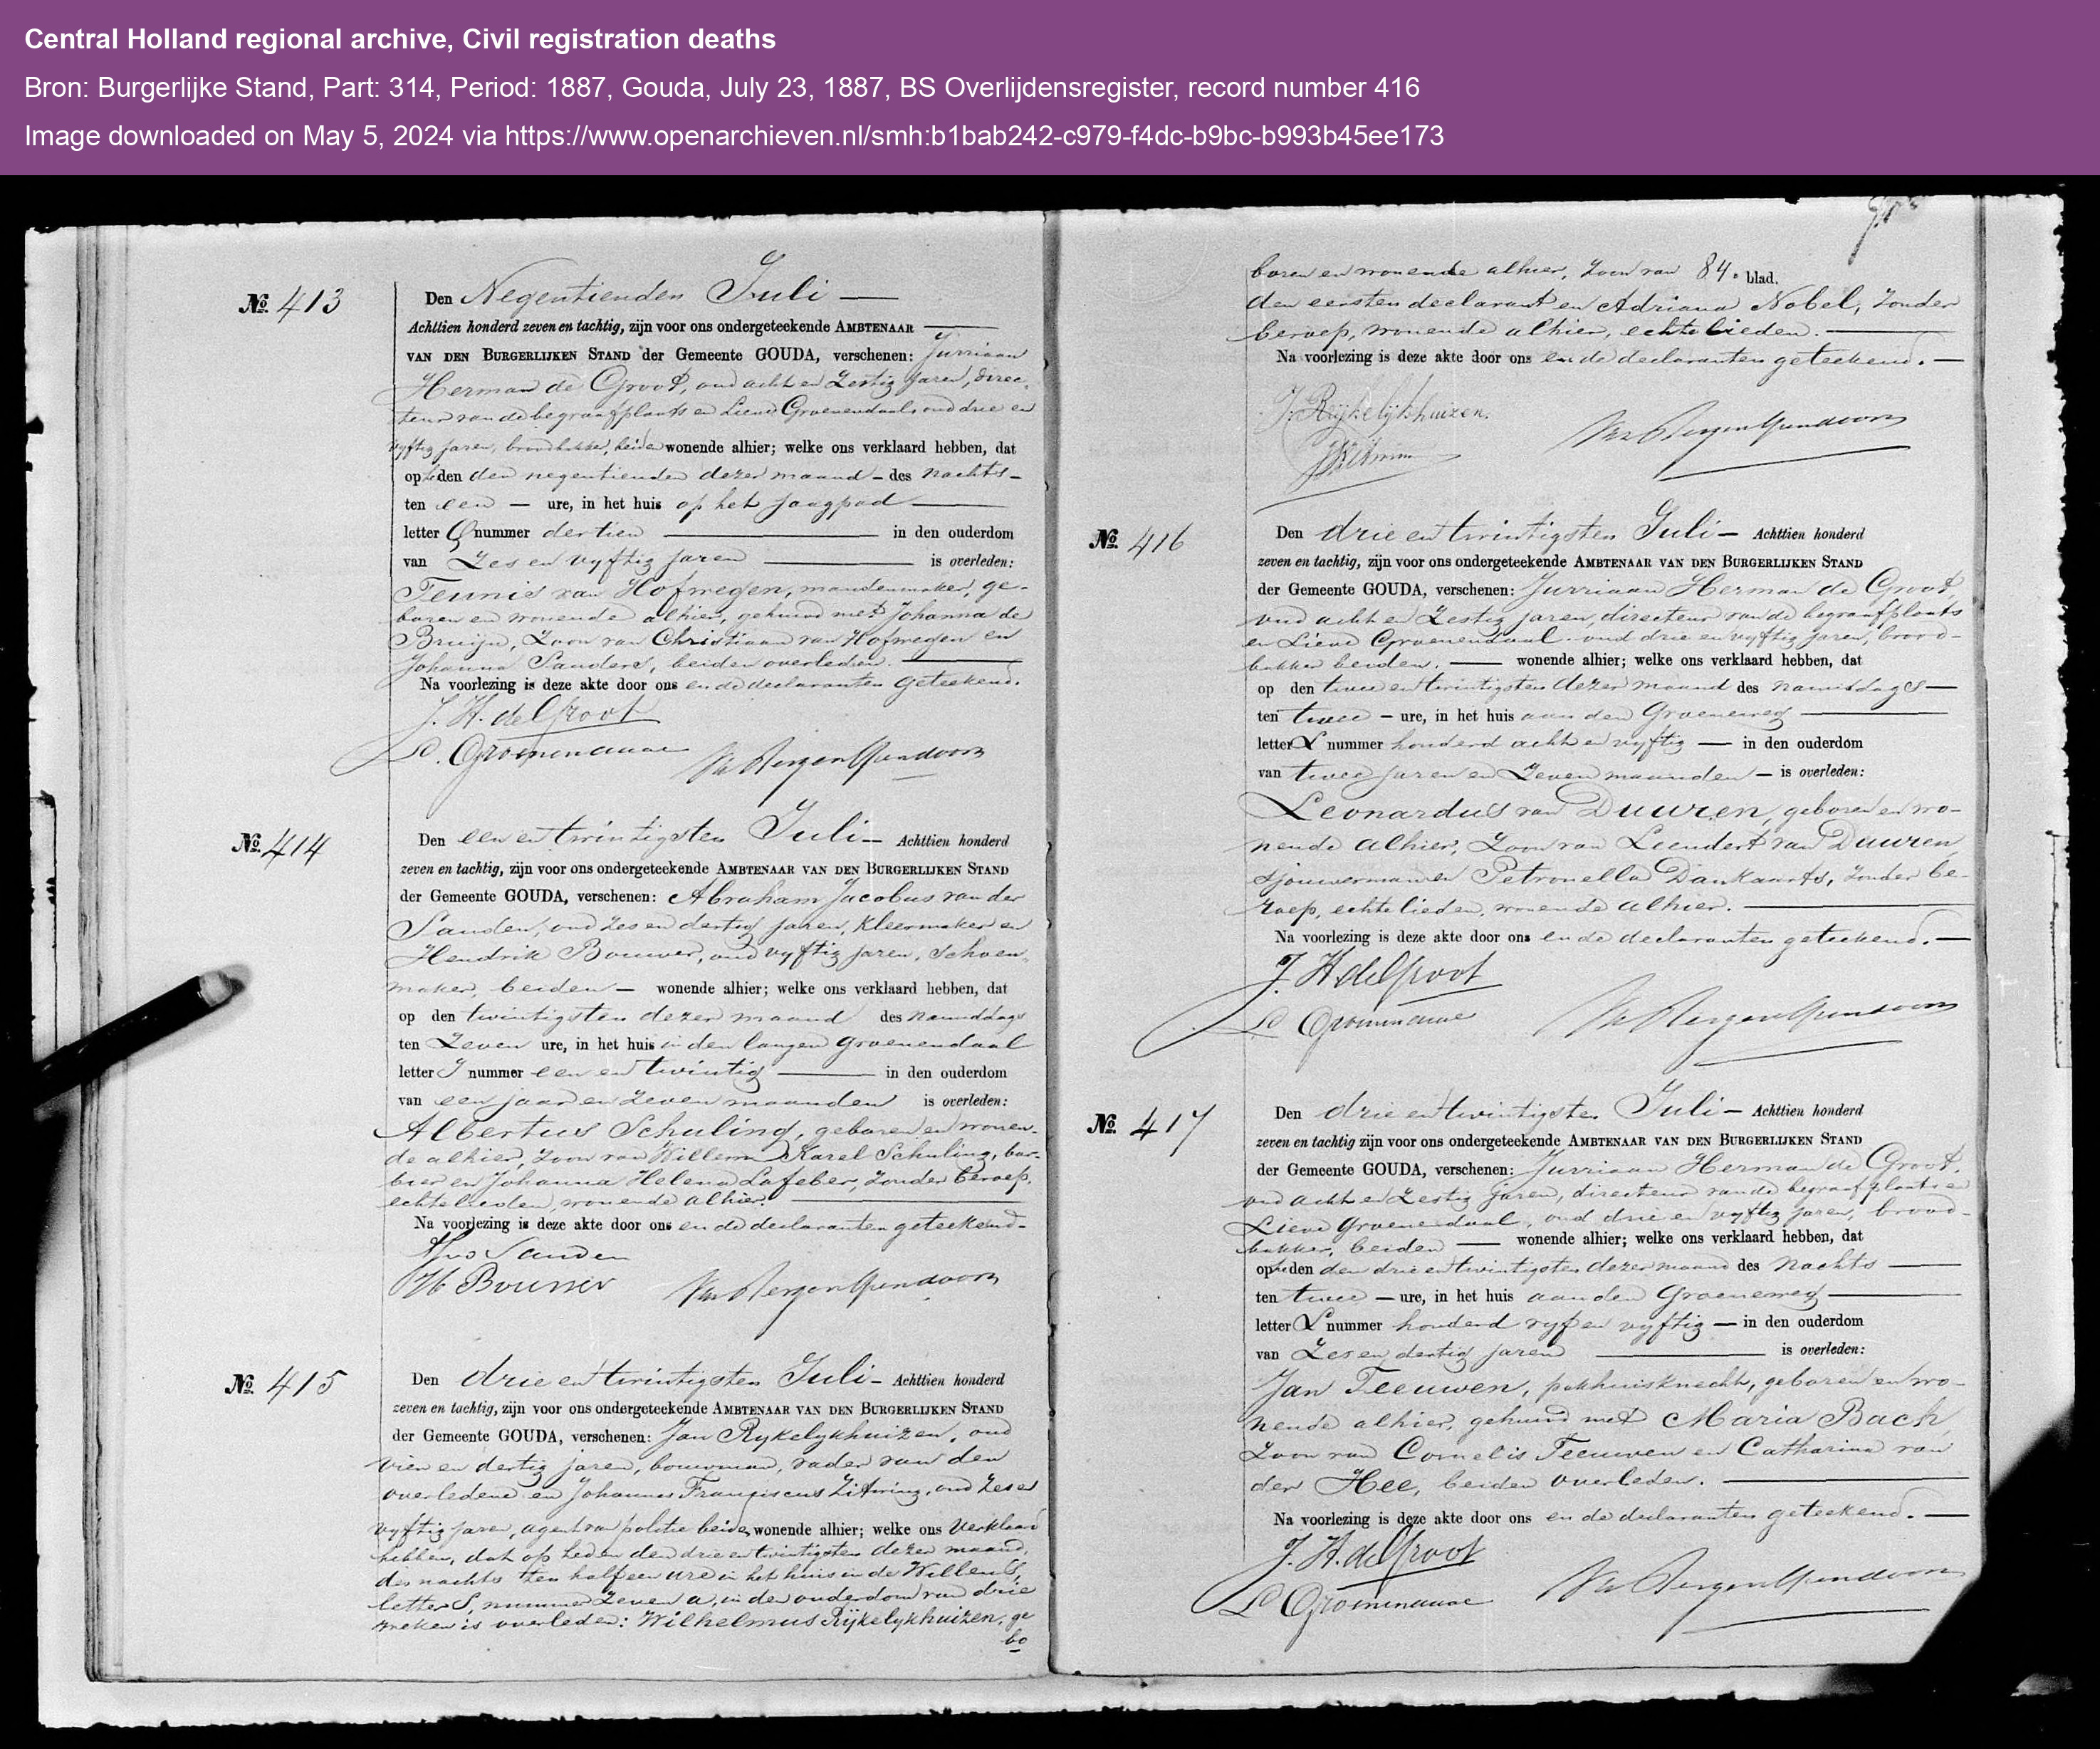 Central Holland regional archive, Civil registration deaths
Bron: Burgerlijke Stand, Part: 314, Period: 1887, Gouda, July 23, 1887, BS Overlijdensregister, record number 416
Image downloaded on May 5, 2024 via https://www.openarchieven.nl/smh:b1bab242-c979-f4dc-b9bc-b993b45ee173
No. 413
Den Negentienden Juli —
Achttien honderd zeven en tachtig, zijn voor ons ondergeteekende AMBTENAAR —
VAN DEN BURGERLIJKEN STAND der Gemeente GOUDA, verschenen: Jurriaan
Herman de Groot, oud acht en Zestig jaren, direc-
teur van de begraafplaats en Lieve Groenendaal oud drie en
vyftig jaren, broodbakker, beiden wonende alhier; welke ons verklaard hebben, dat
op heden den negentienden dezer maand – des nachts –
ten een — ure, in het huis op het jaagpad —
letter Q nummer dertien — in den ouderdom
van Zes en vyftig jaren — is overleden:
Teunis van Hofwegen, mandenmaker, ge-
boren en wonende alhier, gehuwd met Johanna de
Bruijn, Zoon van Christiaan van Hofwegen en
Johanna Sanders, beiden overleden. —
Na voorlezing is deze akte door ons en de declaranten geteekend.
J. H. de Groot
L. Groenendaal van Bergen IJzendoorn
No. 414
Den een en twintigsten Juli – Achttien honderd
zeven en tachtig, zijn voor ons ondergeteekende AMBTENAAR VAN DEN BURGERLIJKEN STAND
der Gemeente GOUDA, verschenen: Abraham Jacobus van der
Sanden, oud zes en dertig jaren, kleermaker en
Hendrik Bouwer, oud vyftig jaren, schoen-
maker, beiden – wonende alhier; welke ons verklaard hebben, dat
op den twintigsten dezer maand des namiddags
ten Zeven ure, in het huis in den langen Groenendaal
letter I nummer een en twintig — in den ouderdom
van een jaar en Zeven maanden is overleden:
Albertus Schuling, geboren en wonen-
de alhier, Zoon van Willem Karel Schuling, bar-
bier en Johanna Helena Lafeber, Zonder beroep,
echtelieden, wonende alhier. —
Na voorlezing is deze akte door ons en de declaranten geteekend –
Sanden
H Bouwer van Bergen IJzendoorn
No. 415
Den drie en twintigsten Juli – Achttien honderd
zeven en tachtig, zijn voor ons ondergeteekende AMBTENAAR VAN DEN BURGERLIJKEN STAND
der Gemeente GOUDA, verschenen: Jan Rykelykhuizen, oud
vier en dertig jaren, bouwman, vader van den
overledene en Johannes Franciscus, oud Zes en
vyftig jaren, agent van politie beide, wonende alhier; welke ons verklaard
hebben, dat op heden den drie en twintigsten dezer maand,
des nachts ten half een ure in het huis in de Willens,
letter S, nummer Zeven a, in den ouderdom van drie
weken is overleden: Wilhelmus Rijkelykhuizen, ge
bo
84e blad.
boren en wonende alhier, Zoon van
den eersten declarant en Adriana Nobel, Zonder
beroep, wonende alhier, echtelieden. —
Na voorlezing is deze akte door ons en de declaranten geteekend. —
J. Rijkelijkhuizen.
van Bergen IJzendoorn
No. 416
Den drie en twintigsten Juli – Achttien honderd
zeven en tachtig, zijn voor ons ondergeteekende AMBTENAAR VAN DEN BURGERLIJKEN STAND
der Gemeente GOUDA, verschenen: Jurriaan Herman de Groot,
oud acht en Zestig jaren, directeur van de begraafplaats
en Lieve Groenendaal oud drie en vyftig jaren, brood-
bakker beiden. — wonende alhier; welke ons verklaard hebben, dat
op den twee en twintigsten dezer maand des namiddags —
ten twee – ure, in het huis aan den Groeneweg —
letter L nummer honderd acht en vyftig — in den ouderdom
van twee jaren en Zeven maanden – is overleden:
Leonardus van Duuren, geboren en wo-
nende alhier, Zoon van Leendert van Duuren,
sjouwerman en Petronella Dankaarts, Zonder be-
roep, echtelieden, wonende alhier. —
Na voorlezing is deze akte door ons en de declaranten geteekend. —
J. H. de Groot
L Groenendaal van Bergen IJzendoorn
No. 417
Den drie en twintigsten Juli – Achttien honderd
zeven en tachtig zijn voor ons ondergeteekende AMBTENAAR VAN DEN BURGERLIJKEN STAND
der Gemeente GOUDA, verschenen: Jurriaan Herman de Groot,
oud acht en Zestig jaren, directeur van de begraafplaats en
Lieve Groenendaal, oud drie en vyftig jaren, brood-
bakker, beiden — wonende alhier; welke ons verklaard hebben, dat
op heden den drie en twintigsten dezer maand des nachts —
ten twee – ure, in het huis aan den Groeneweg —
letter L nummer honderd vyf en vyftig – in den ouderdom
van Zes en dertig jaren — is overleden:
Jan Teeuwen, pakhuisknecht, geboren en wo-
nende alhier, gehuwd met Maria Bach,
Zoon van Cornelis Teeuwen en Catharina van
der Hee, beiden overleden. —
Na voorlezing is deze akte door ons en de declaranten geteekend. —
J. H. de Groot
L Groenendaal van Bergen IJzendoorn